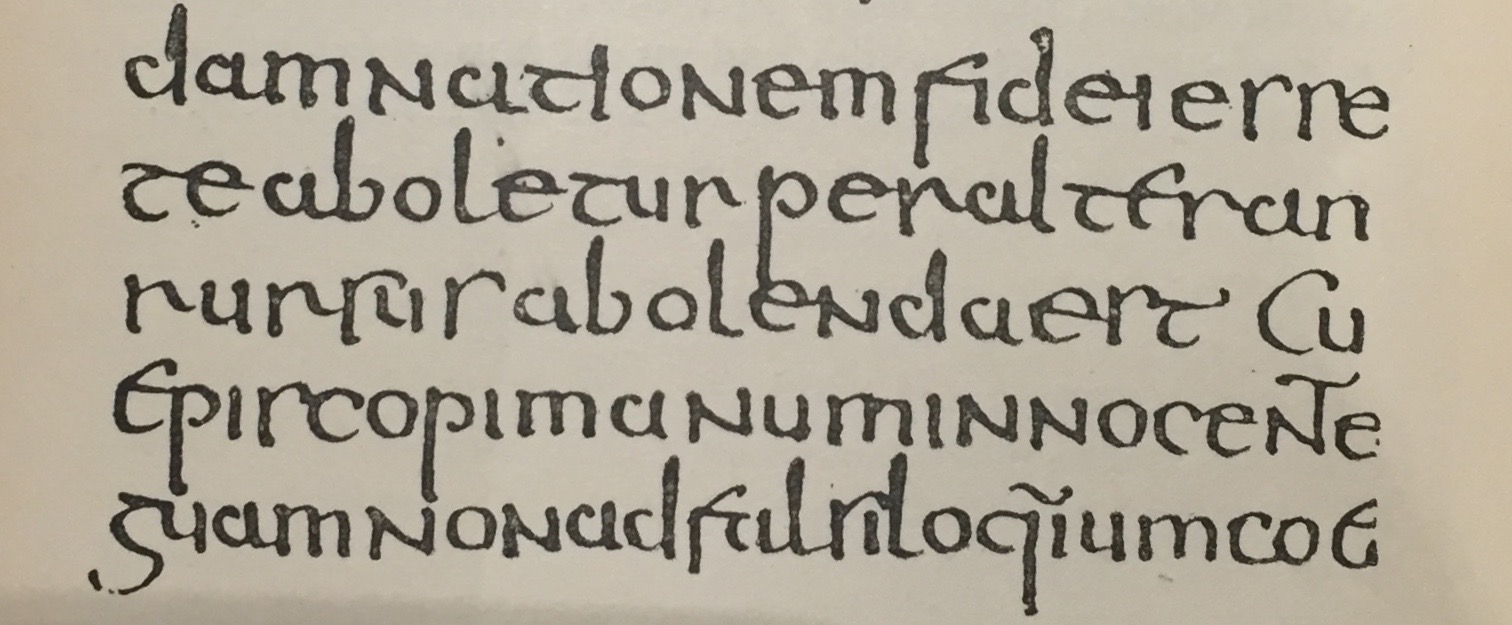 damnationemfideiesse
teaboleturperalteran
rursusabolendaest Cu
episcopimanuminnocente
guamnonadfalsiloq̃iumcoe